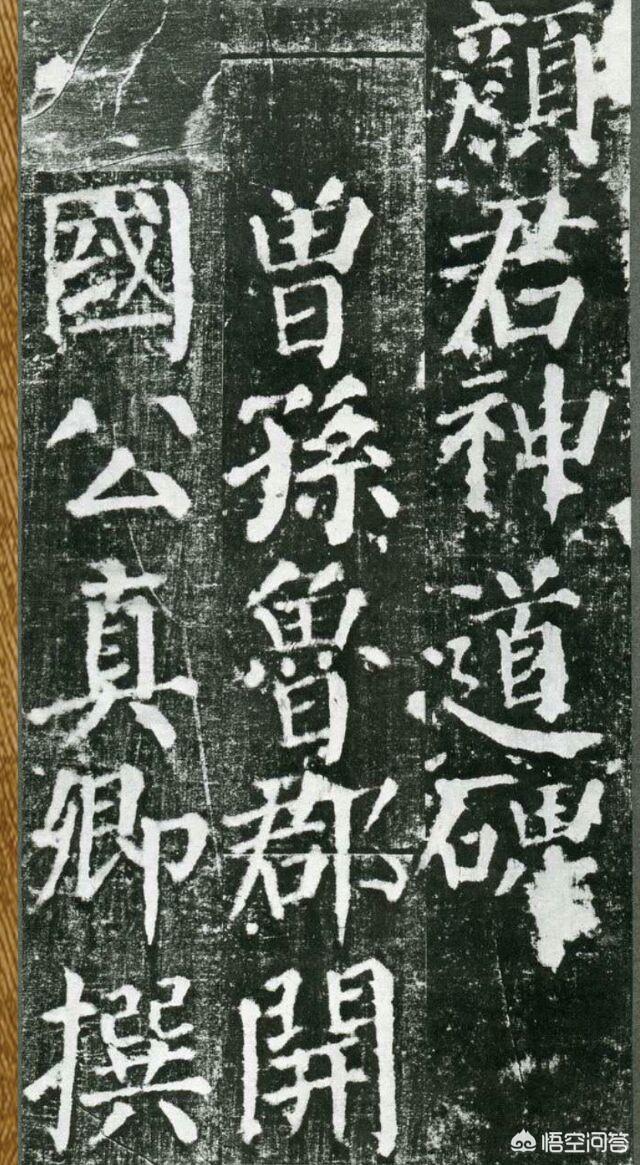 顏君神道碑
曾孫魯郡開
國公真卿撰
悟空问答